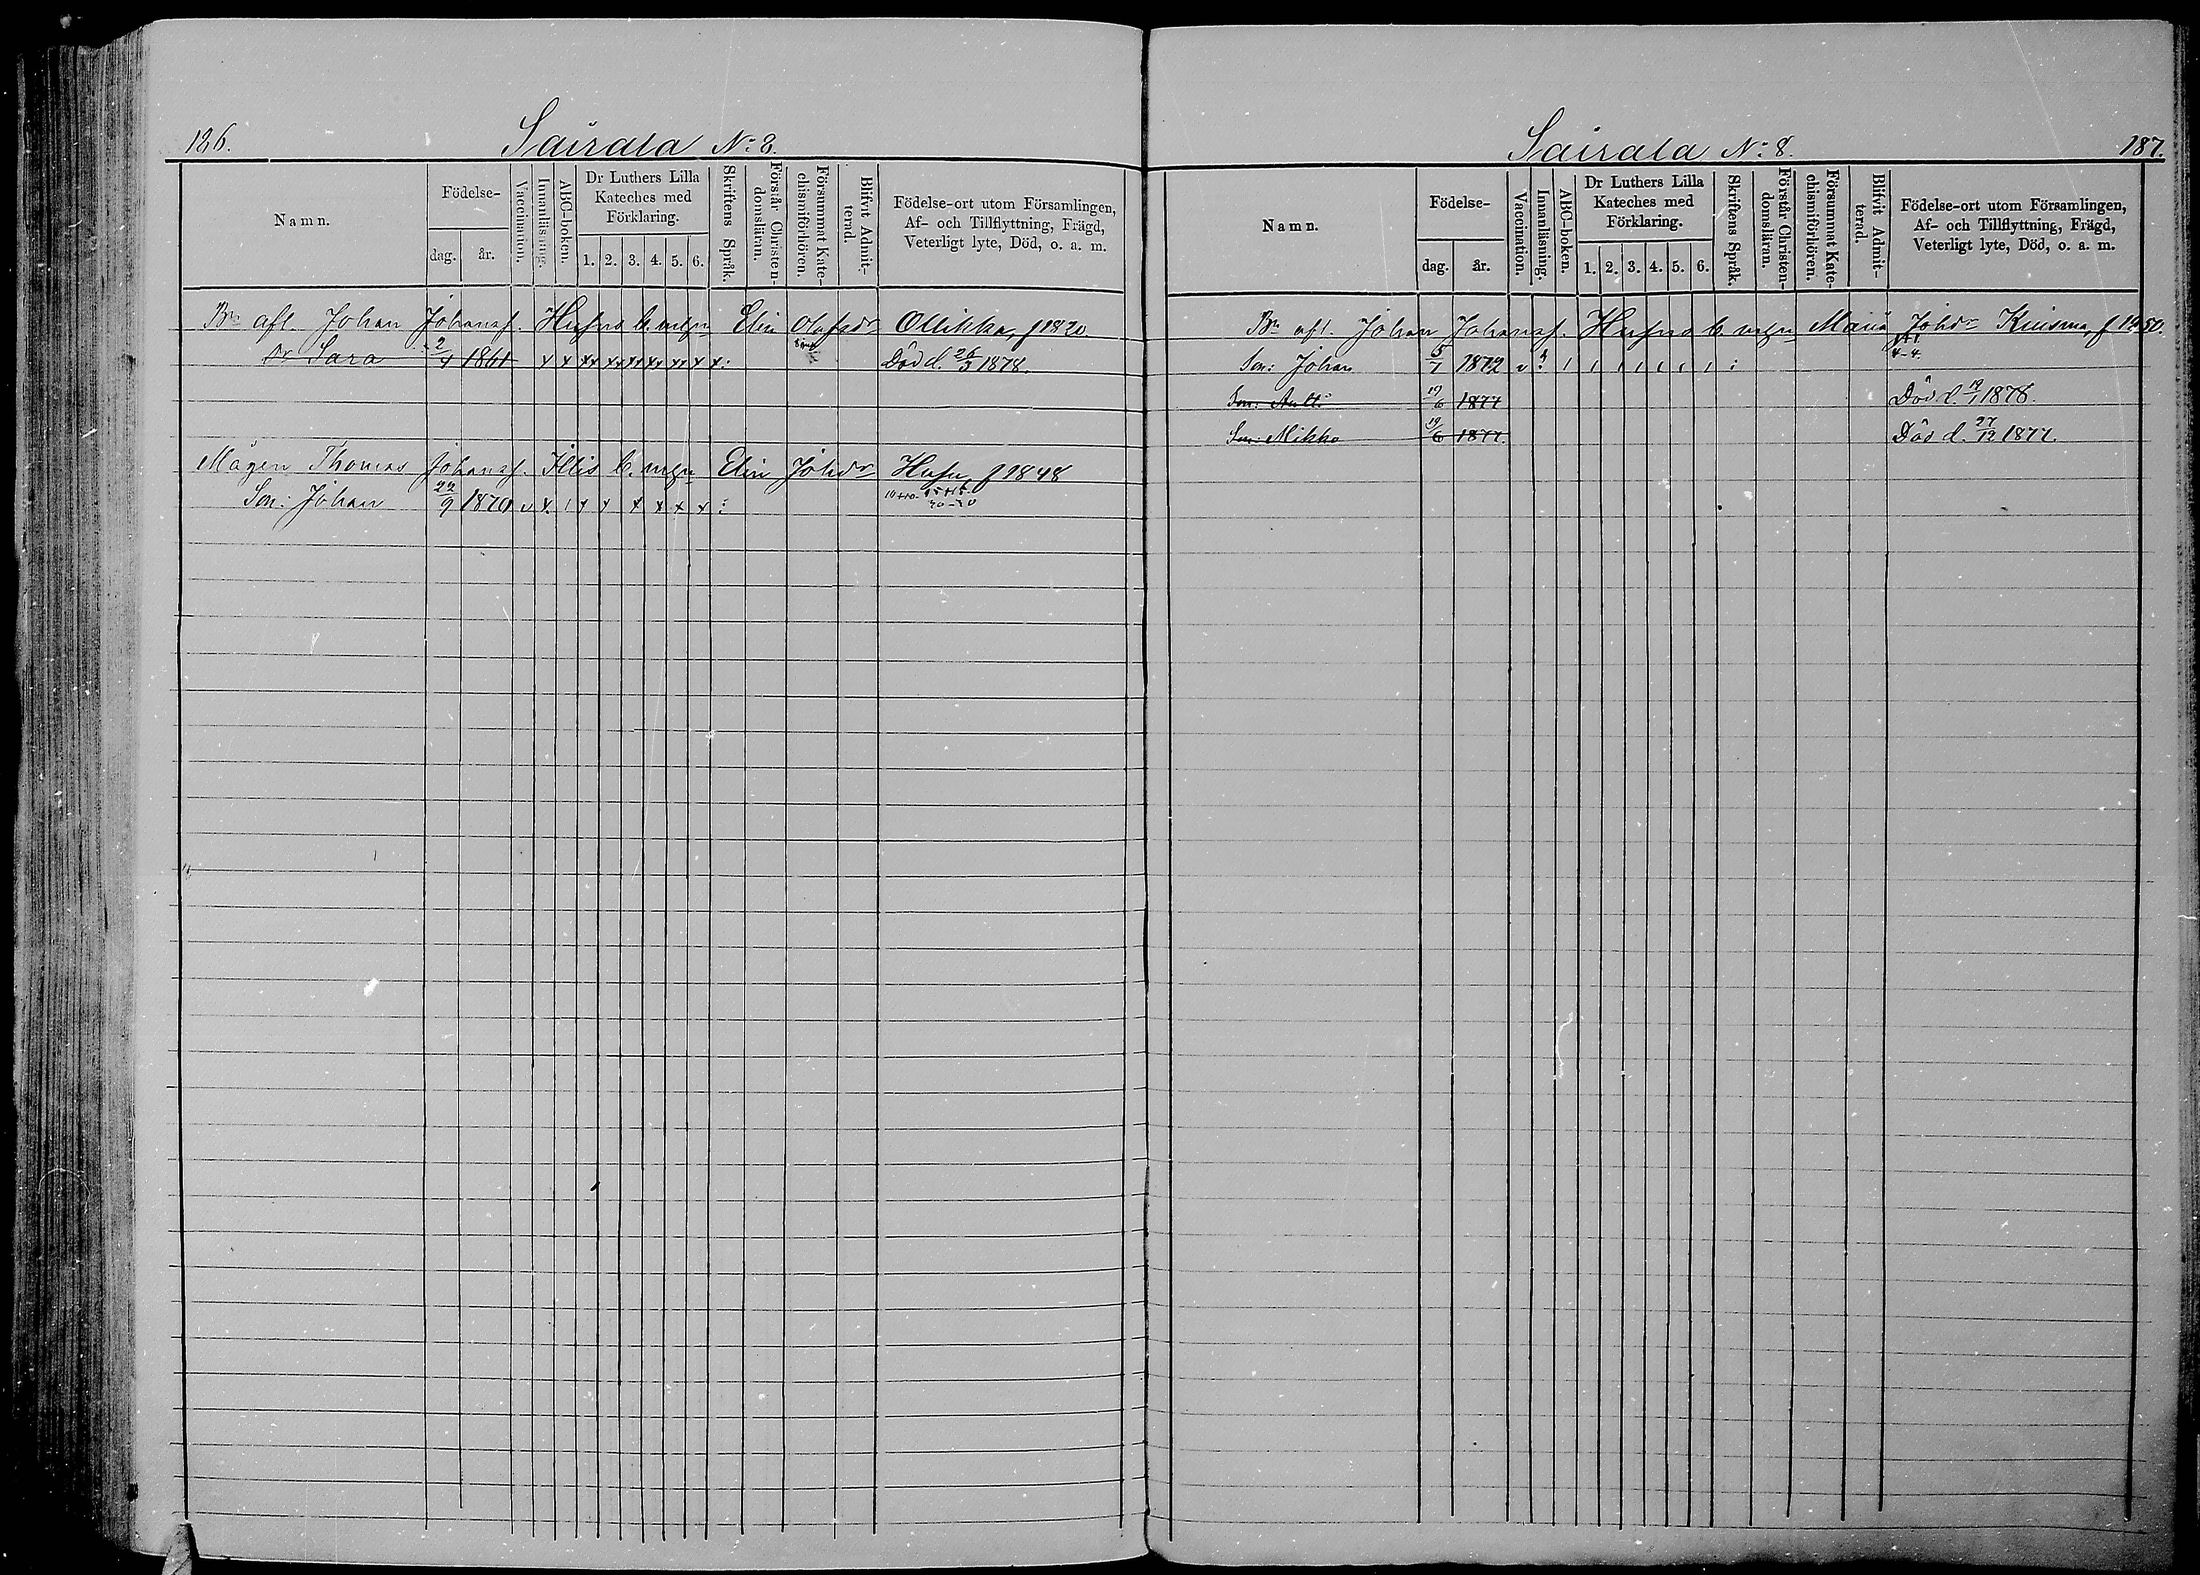 186.
Sairala No 8.
Namn.
Födelse-
dag.
år.
Vaccination.
Innanläsning.
ABC-boken.
Dr Luthers Lilla
Kateches med
Förklaring.
1. 2. 3. 4. 5. 6.
Skriftens Språk.
Förstår Christen-
domsläran.
Försummat Kate-
chismiförhören.
Blifvit Admit-
terad.
Födelse-ort utom Församlingen,
Af- och Tillflyttning, Frägd,
Veterligt lyte, Död, o. a. m.
Bn afl. Johan Johansf. Hufvo b. m. Elin Olofsdr Ollikka, f 1820
Dr Sara 2/4 1861 x x xx xx xx xx xx x x: Död d. 26/3 1878.
Mågen Thomas Johansf. Illis b. m. Elin Johdr f 1848
Son: Johan 22/9 1870 v x 1 x x x x x x :
187.
Sairala No 8.
Namn.
Födelse-
dag.
år.
Vaccination.
Innanläsning.
ABC-boken.
Dr Luthers Lilla
Kateches med
Förklaring.
1. 2. 3. 4. 5. 6.
Skriftens Språk.
Förstår Christen-
domsläran.
Försummat Kate-
chismiförhören.
Blifvit Admit-
terad.
Födelse-ort utom Församlingen,
Af- och Tillflyttning, Frägd,
Veterligt lyte, Död, o. a. m.
Bn afl. Johan Johansf. Hufvo b. m. Maria Johdr Kuisma, f 1850.
Son: Johan 5/7 1872 v 1 1 1 1 1 1 1 : 4-4.
Son: Antti 19/6 1877 Död d. 19/1 1878.
Son: Mikko 19/6 1877. Död d. 27/12 1877.